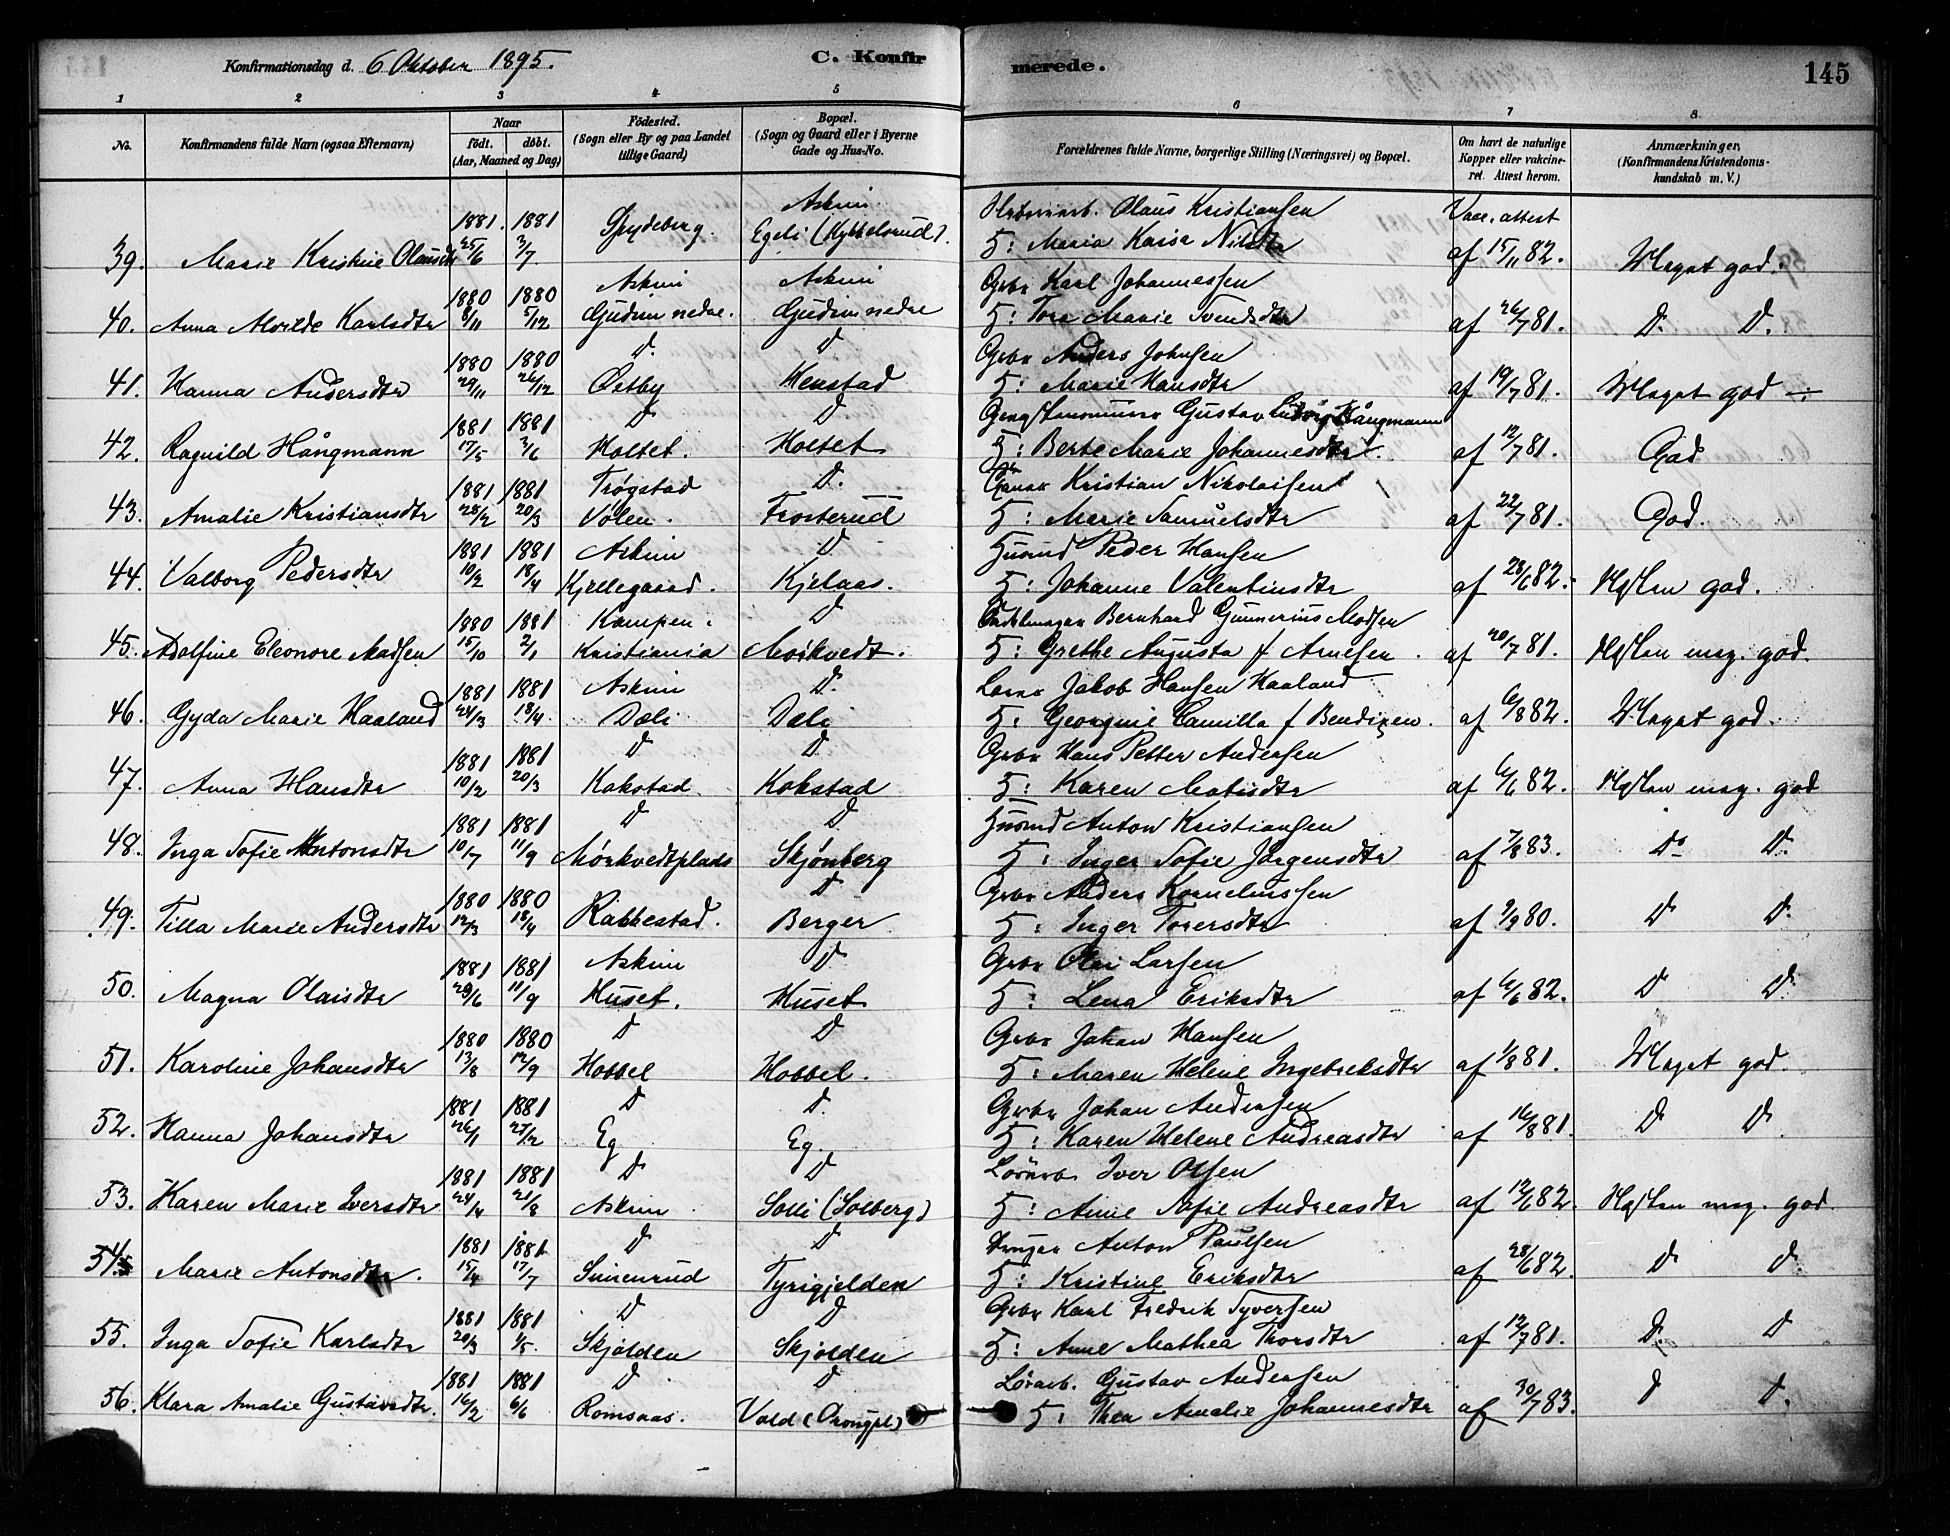 Konfirmationsdag d. 6 Oktober 1895. C. Konfirmerede. 145
1 2 3 4 5 6 7 8
No. Konfirmandens fulde Navn (ogsaa Efternavn) Naar født. døbt. (Aar, Maaned og Dag) Fødested. (Sogn eller By og paa Landet tillige Gaard) Bopæl. (Sogn og Gaard eller i Byerne Gade og Hus-No. Forældrenes fulde Navne, borgerlige Stilling (Næringsvei) og Bopæl. Om havt de naturlige Kopper eller vakcineret. Attest herom. Anmærkninger, (Konfirmandens Kristendomskundskab m. V.)
1881. 1881 Askim Olaus Kristiansen Vacc. attest
39. Marie Kristine Olausdtr 25/6 3/7 Spydeberg. Egeli (Kykkelsrud). H: Maria Kaisa Nilsdtr af 15/11 82. Meget god.
1880 1880 Askim Askim Grbr Karl Johannessen
40. Anna Movilde Karlsdtr 8/11 5/12 Gudim nedre. Gudim nedre H: Tora Marie Svendsdtr af 26/7 81. D. D.
1880 1880 D. D Grbr Anders Johnsen
41. Hanna Andersdtr 29/11 26/12 Østby Henstad H: Marie Hansdtr af 19/7 81. Meget god
1881 1881 D D. Gustav Ludvig Hångmann
42. Ragnild Hångmann 17/5 3/6 Holtet. Holtet H: Berte Marie Johannesdtr. af 12/7 81. God
1881 1881 Trøgstad D. Kristian Nikolaisen
43. Amalie Kristiansdtr 28/2 20/3 Volen. Frosterud H: Marie Samuelsdtr af 22/7 81. God.
1881 1881 Askim D Husmd Peder Hansen
44. Valborg Pedersdtr 10/2 18/4 Kjellegaard. Kjelaas. H: Johanne Valentinsdtr af 28/6 82. Næsten god.
1880 1881 Kampen. D Bernhard Gunnerius Madsen
45. Adolfine Eleonore Madsen 15/10 2/1 Kristiania Mørkvedt. H: Grethe Augusta f Arnesen. af 20/7 81. Næsten meg. god.
1881 1881 Askim D. Jakob Hansen Haaland
46. Gyda Marie Haaland 24/3 18/4. Dæli Dæli H: Georgine Camilla f Bendixen. af 6/8 82. Meget god.
1881 1881 D D Grbr Hans Petter Andersen
47. Anna Hansdtr 10/2 20/3 Kokstad. Kokstad H: Karen Matisdtr af 6/6 82. Næsten meg. god
1881 1881 D D. Husmd Anton Kristiansen
48. Inga Sofie Antonsdtr 10/7 11/9 Mørkvedtplads Skjønberg H: Inger Sofie Jørgensdtr af 7/8 83. Do D.
1880 1880 D Grbr Anders Korneliussen
49. Tilla Marie Andersdtr 12/3 18/4 Rakkestad. Berger H: Inger Torersdtr af 9/9 80. D D.
1881 1881 Askim D Grbr Olai Larsen
50. Magna Olaisdtr 20/6 11/9 Huset. Huset H: Lena Eriksdtr af 6/6 82. D D.
1880 1880 D D Grbr Johan Hansen
51. Karoline Johansdtr 13/8 12/9 Hobbel Hobbel. H: Maren Helene Ingebretsdtr af 1/8 81. Meget god.
1881 1881 D D. Grbr Johan Andersen
52. Hanna Johansdtr 26/1 27/2 Eg Eg. H: Karen Helene Andreasdtr af 16/8 81. D D.
1881 1881 D D Iver Olsen
53. Karen Marie Iversdtr 24/4 21/8 Askim Solli (Solberg) H: Anne Sofie Andreasdtr af 12/6 82. Næsten meg. god.
1881 1881 D D Anton Paulsen
54. Marie Antonsdtr. 15/4 17/7 Sinenrud Tyrigjelden H: Kristine Eriksdtr af 28/6 82. D D.
1881 1881 D D Grbr Karl Fredrik Syversen
55. Inga Sofie Karlsdtr 20/3 1/5. Skjolden Skjolden H: Anne Mathea Thorsdtr af 12/7 81. D. D
1881 1881 D. D Gustav Andersen
56. Klara Amalie Gustavsdtr. 16/2 6/6 Romsaas. Vold H: Thea Amalie Johannesdtr af 30/7 83. D D.